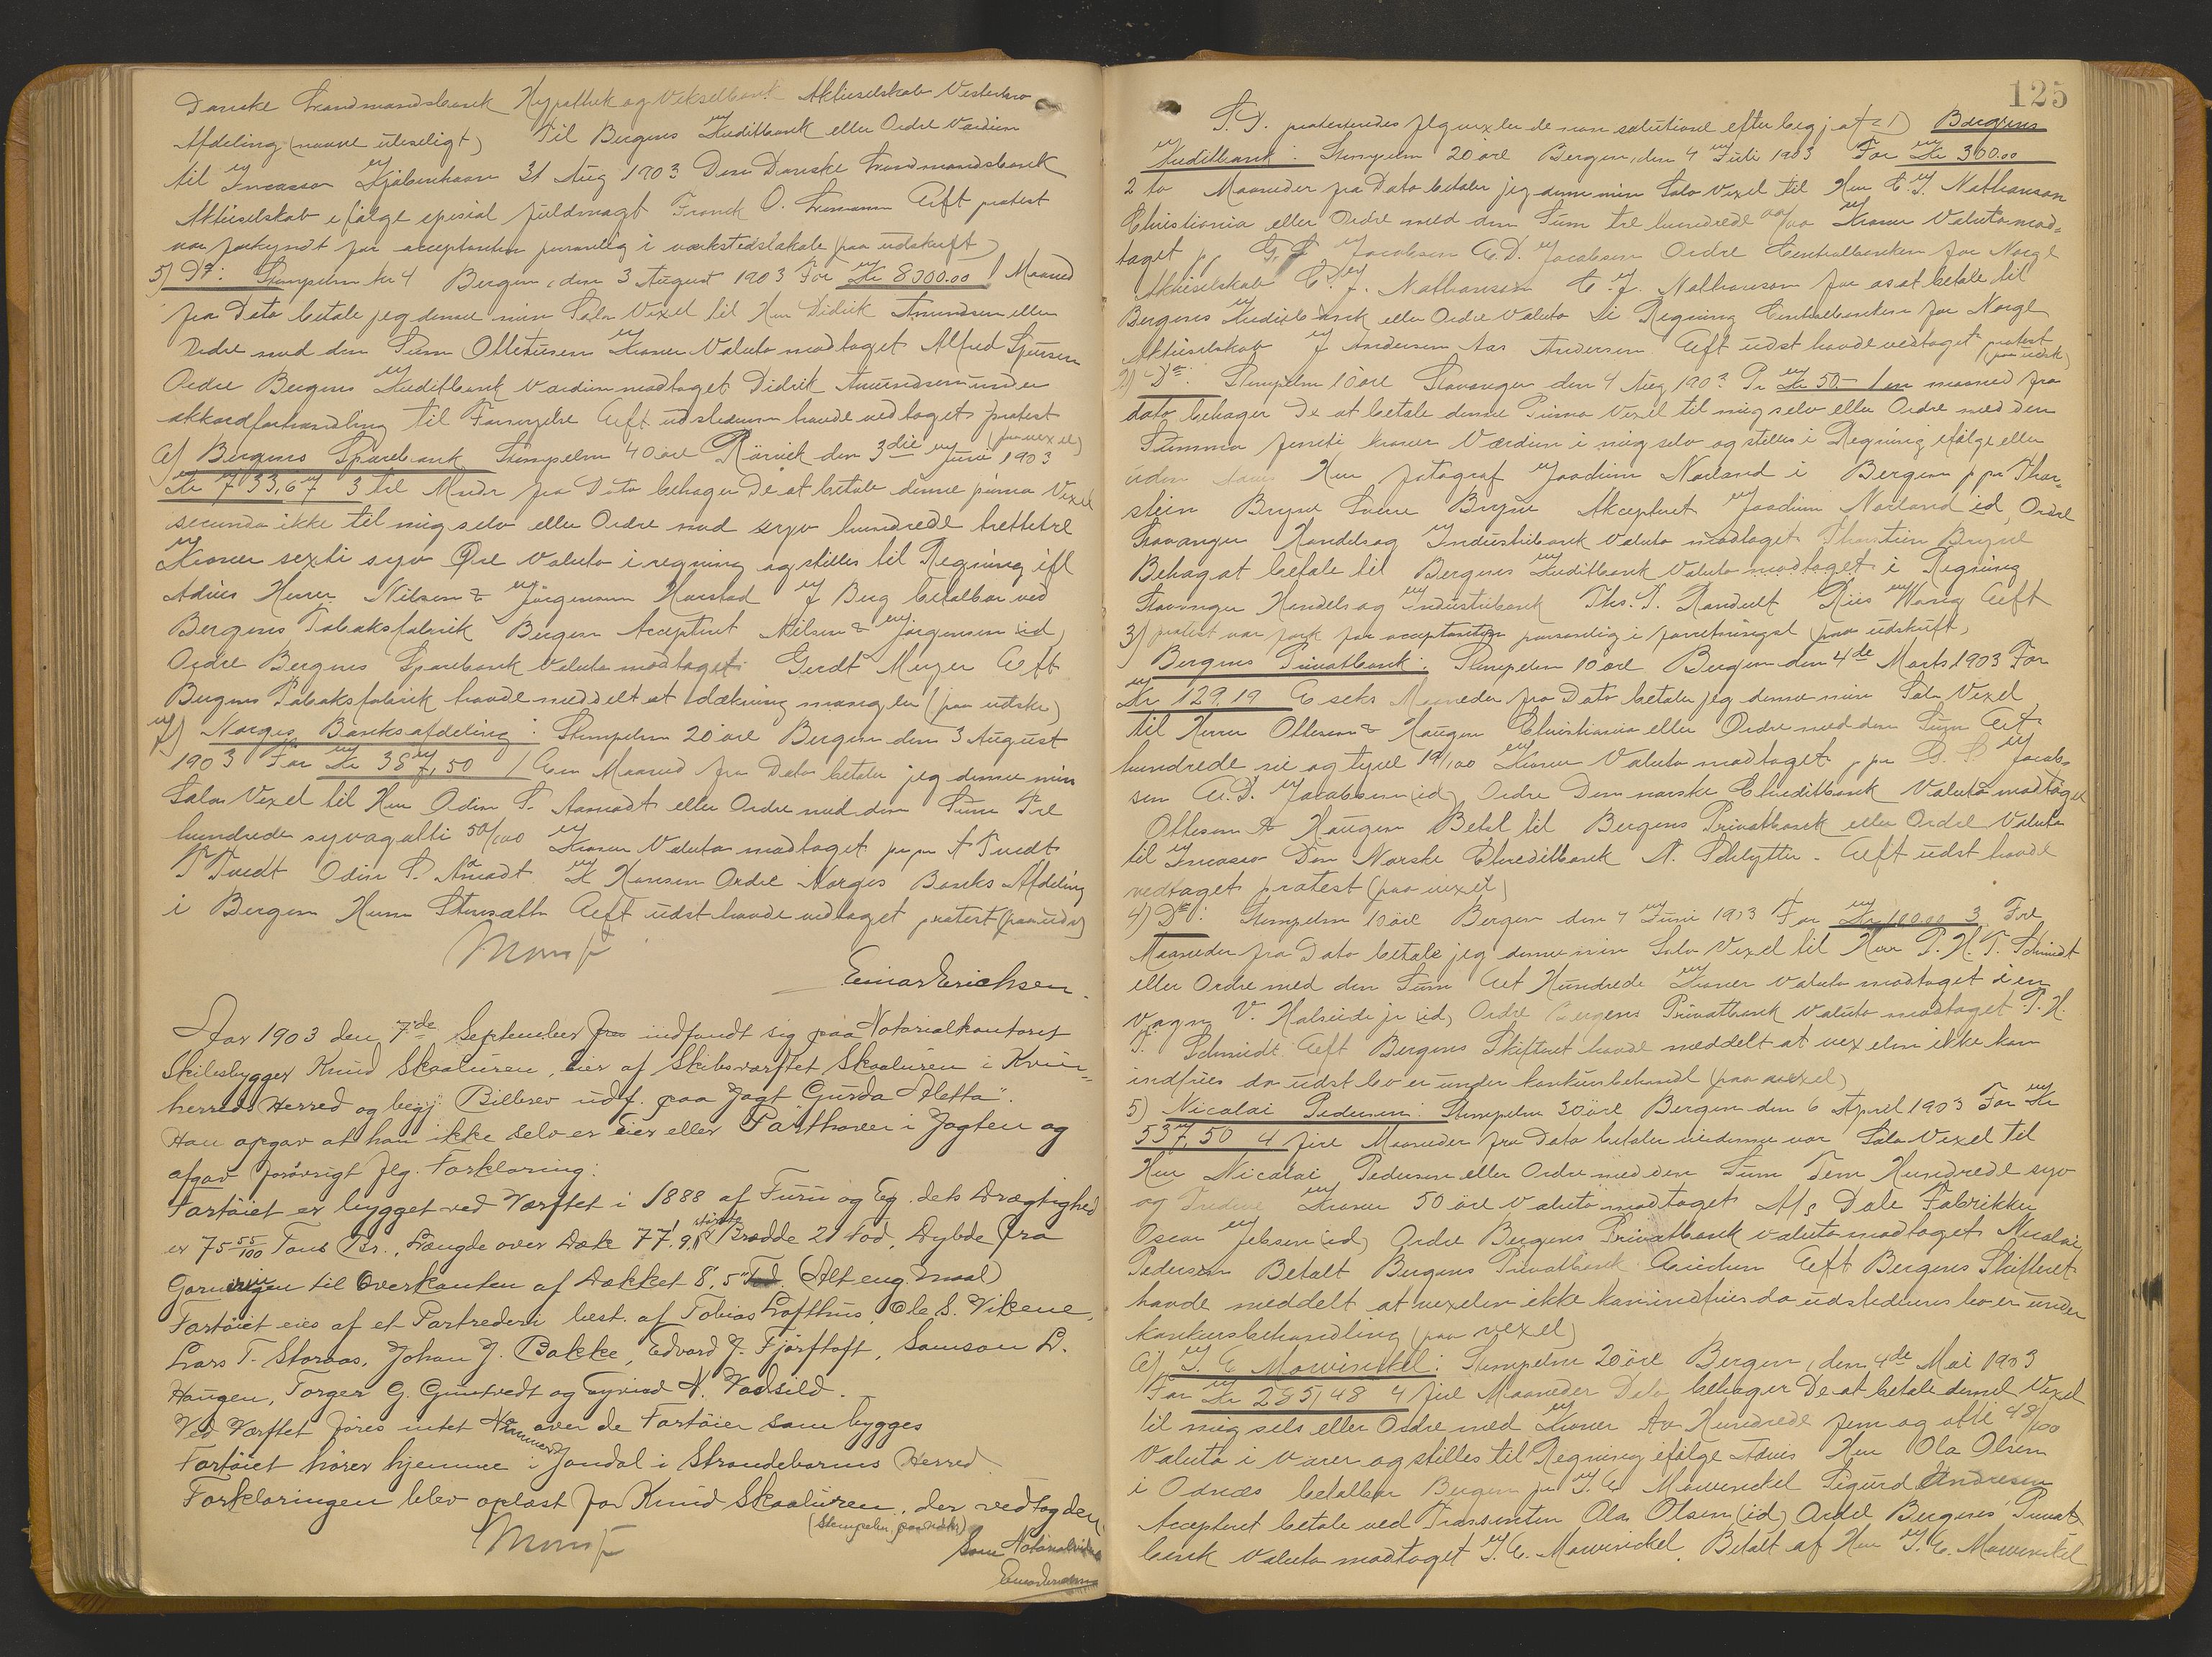 Danske Landmandsbank Hypothek og Vekselbank Aktieselskab Vesterbro
Afdeling (navne uleseligt) Til Bergens Kreditbank eller Ordre Værdien
til Incasso Kjøbenhavn 31 Aug 1903 Den Danske Landmandsbank
Aktieselskab ifølge spesial fuldmagt Franck O. Aeft protest
var forkyndt for acceptanten personlig i værkstedslokale (paa udskrift)
5) Do: Stempelm kr 4 Bergen, den 3 August 1903 For Kr 8000.00 1 Maaned
fra Dato betale jeg denne min Sola Vexel til Herr Didrik Amundsen eller
Ordre med den Sum Ottetusen Kroner Valuta modtaget Alfred
Ordre Bergens Kreditbank Værdien modtaget Didrik Amundsen under
akkordforhandling til Fornyelse Aeft udstederen havde vedtaget protest
(paa vexel)
6) Bergens Sparebank Stempelm 40 øre Rørvik den 3die Juni 1903
Kr 733,67 3 tre Mndr fra Dato behager De at betale denne prima Vexel
secunda ikke til mig selv eller Ordre med syv hundrede trettetre
Kroner sexti syv Øre Valuta i regning og stilles til Regning ifl
Advis Herrer Nilsen & Jørgensen Harstad J Berg betalbar ved
Bergens Tobaksfabrik Bergen Accepteret Nilsen & Jørgensen (id)
Ordre Bergens Sparebank Valuta modtaget Gerdt Meyer Aeft
Bergens Tobaksfabrik havde meddelt at dækning mangler (paa udskr)
7) Norges Banks afdeling: Stempelm 20 øre Bergen den 3 August
1903 For Kr 387,50 1 Een Maaned fra Dato betaler jeg denne min
Sola Vexel til Herr Odin S. Aamodt eller Ordre med den Sum Tre
hundrede syvogotti 50/100 Kroner Valuta modtaget pr pr A Tvedt
T Tvedt Odin S. Åmodt K Hansen Ordre Norges Banks Afdeling
i Bergen Aeft udst havde vedtaget protest (paa udsk)
Einar Erichsen.
Aar 1903 den 7de September indfandt sig paa Notarialkontoret
Skibsbygger Knud Skaaluren, Eier af Skibsværftet Skaaluren i Kvin-
herreds Herred og begj. Bilbrev udf. paa Jagt "Gurda Aletta".
Han opgav at han ikke selv er Eier eller Parthaver i Jagten og
afgav forøvrigt flg. Forklaring:
Fartøiet er bygget ved Værftet i 1888 af Furu og Eg, dets Drægtighed
er 75 55/100 Tons Br., Længde over Dæk 77' 9" største Bredde 21 Fod, Dybde fra
Garneringen til Overkanten af Dækket 8' 5" (Alt eng. Maal)
Fartøiet eies af et Partrederi best. af Tobias Lofthus, Ole S. Vikene,
Lars T. Storaas, Johan J. Bakke, Edvard J. Fjørtoft, Samson L.
Haugen, Torger G. Guntvedt og Eyvind N. Vadsild.
Ved Værftet føres intet Nummer over de Fartøier som bygges
Fartøiet hører hjemme i Jondal i Strandebarms Herred
Forklaringen blev oplæst for Knud Skaaluren, der vedtog den
(Stempelm. paa udskr)
Som Notarialvidne
Einar Erichsen
125
S.D. protesteredes flg vexler de non solutione efter begj af 1) Bergens
Kreditbank: Stempelm 20 øre Bergen, den 4 Juli 1903 For Kr 300.00
2 to Maaneder fra Dato betaler jeg denne min Sola Vexel til Herr C. J. Nathanson
Christiania eller Ordre med den Sum tre hundrede 00/100 Kroner Valuta mod-
taget pp G. S Jacobsen A. D. Jacobsen Ordre Centralbanken for Norge
Aktieselskab C. J. Nathanson C. J. Nathanson for os at betale til
Bergens Kreditbank eller Ordre Valuta i Regning Centralbanken for Norge
Aktieselskab J Andersen Aas Andersen Aeft udst havde vedtaget protest
(paa udsk)
2) Do: Stempelm 10 øre Stavanger den 4 Aug 1903 Pr Kr 50– 1 en maaned fra
dato behager De at betale denne Prima Vexel til mig selv eller Ordre med den
Summa femti kroner Værdien i mig selv og stilles i Regning ifølge eller
uden Herr fotograf Joachim Norland i Bergen p pr Thor-
stein Bryne Bryne Akcepteret Joachim Norland (id) Ordre
Stavanger Handels og Industribank Valuta modtaget Thorstein Bryne
Behag at betale til Bergens Kreditbank Valuta modtaget i Regning
Stavanger Handels og Industribank Ths. T. Randulf Riis Wang Aeft
protest var fork for acceptanten personlig i forretningsl (paa udskrift)
3) Bergens Privatbank: Stempelm 10 øre Bergen den 4de Marts 1903 For
Kr 129.19 6 seks Maaneder fra Dato betaler jeg denne min Sola Vexel
til Herrer Ottesen & Haugen Christiania eller Ordre med den Sum Et-
hundrede ni og tyve 19/100 Kroner Valuta modtaget pr pr G. S Jacob-
sen A. D. Jacobsen (id) Ordre Den norske Creditbank Valuta modtaget
Ottesen & Haugen Betal til Bergens Privatbank eller Ordre Valuta
til Incasso Den Norske Creditbank N. Schlytter. Aeft udst havde
vedtaget protest (paa vexel)
4) Do: Stempelm 10 øre Bergen den 4 Juni 1903 For Kr 100.00 3 Tre
Maaneder fra Dato betale jeg denne min Sola Vexel til Herr P. H. T. Schmidt
eller Ordre med den Sum Et Hundrede Kroner valuta modtaget i en
Vogn V. Halseide jr (id) Ordre Bergens Privatbank valuta modtaget P. H.
T. Schmidt. Aeft Bergens Skifteret havde meddelt at vexelen ikke kan
indfries da udst bo er under konkursbehandl (paa vexel)
5) Nicolai Pedersen: Stempelm 30 øre Bergen den 6 April 1903 For Kr
537,50 4 fire Maaneder fra Dato betaler vi denne vor Sola Vexel til
Herr Nicolai Pedersen eller Ordre med den Sum Fem Hundrede syv
og Tredive Kroner 50 øre Valuta modtaget A/S Dale Fabrikker
Oscar Jebsen (id) Ordre Bergens Privatbank valuta modtaget Nicolai
Pedersen Betalt Bergens Privatbank Aeft Bergens Skifteret
havde meddelt at vexelen ikke kan indfries da udstederens bo er under
konkursbehandling (paa vexel)
6) J. E Mowinckel: Stempelm 20 øre Bergen, den 4de Mai 1903
For Kr 285,48 4 fire Maaneder Dato behager De at betale denne Vexel
til mig selv eller Ordre med Kroner To Hundrede fem og otti 48/100
Valuta i varer og stilles til Regning ifølge Advis Herr Ola Olsen
i Odnæs betalbar Bergen pr J. E Mowinckel Sigurd Andresen
Accepteret betale ved Trassenten Ola Olsen (id) Ordre Bergens Privat-
bank Valuta modtaget J. E. Mowinckel. Betalt af Herr J. E. Mowinckel